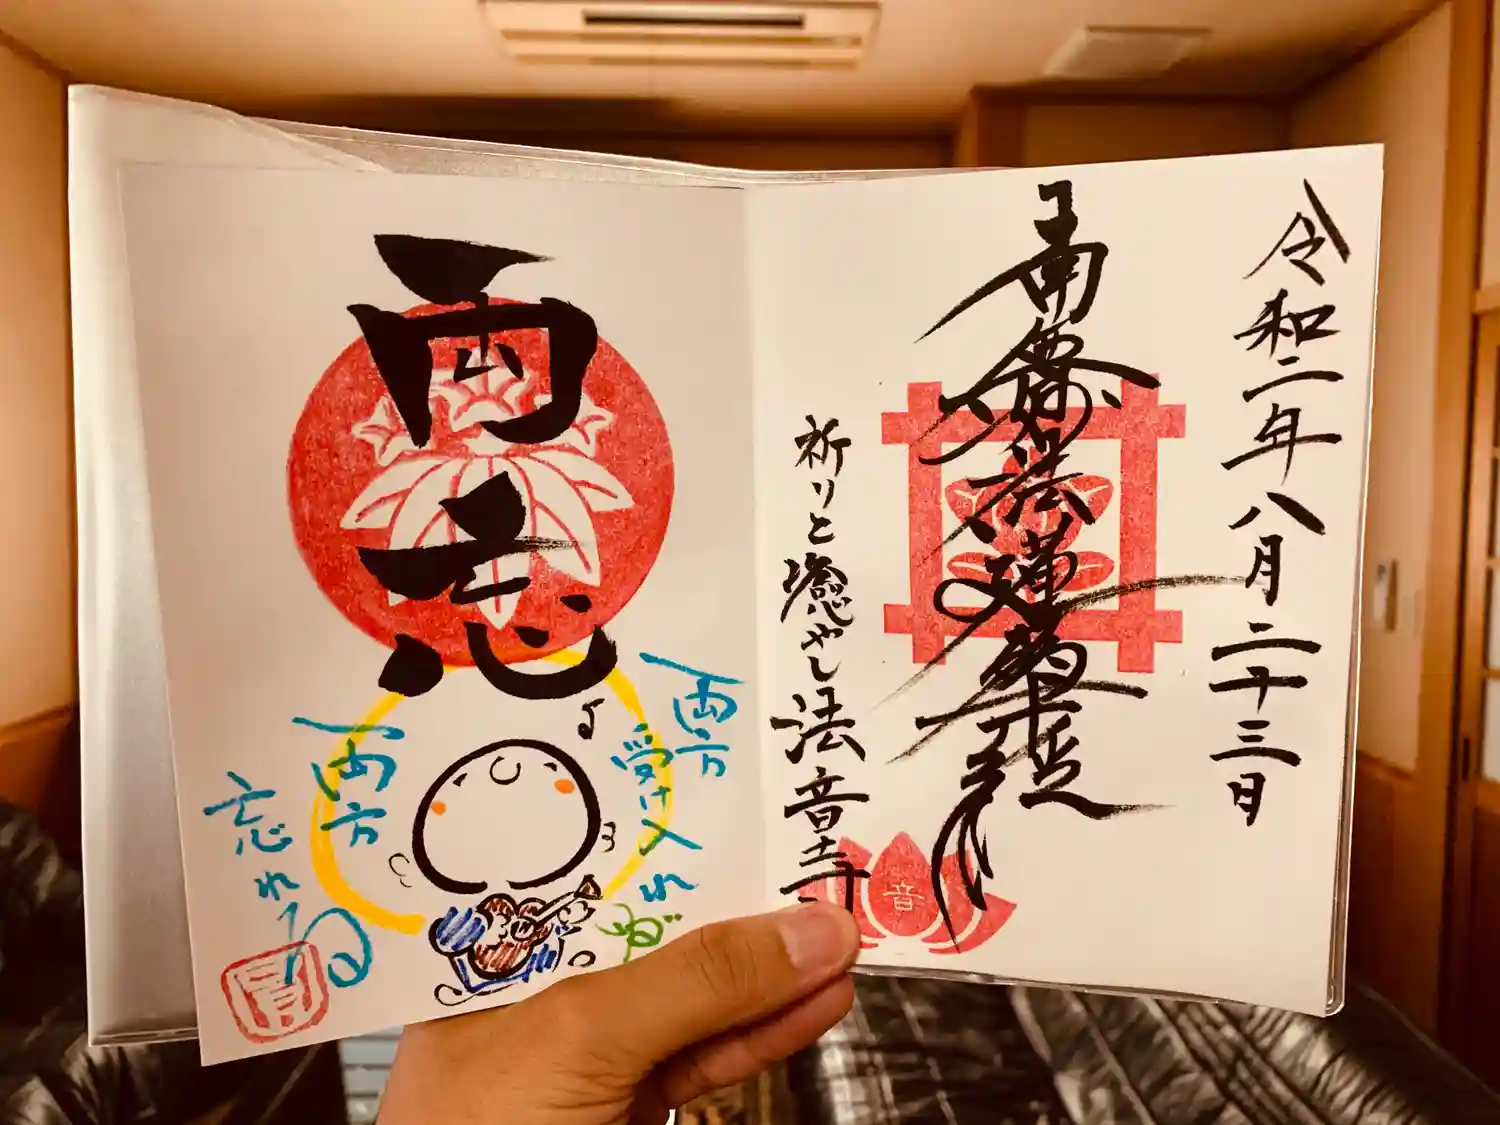 令和二年八月二十三日
南無妙法蓮華経
祈りと癒やし法音寺
音
両忘
両方
受け入れ
両方
忘れる